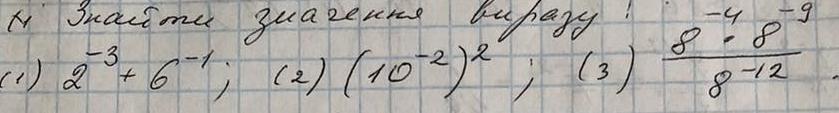 Знайти значення виразу:
(1) 2⁻³ + 6⁻¹; (2) (10⁻²)²; (3) (8⁻⁴ · 8⁻⁹)/8⁻¹².